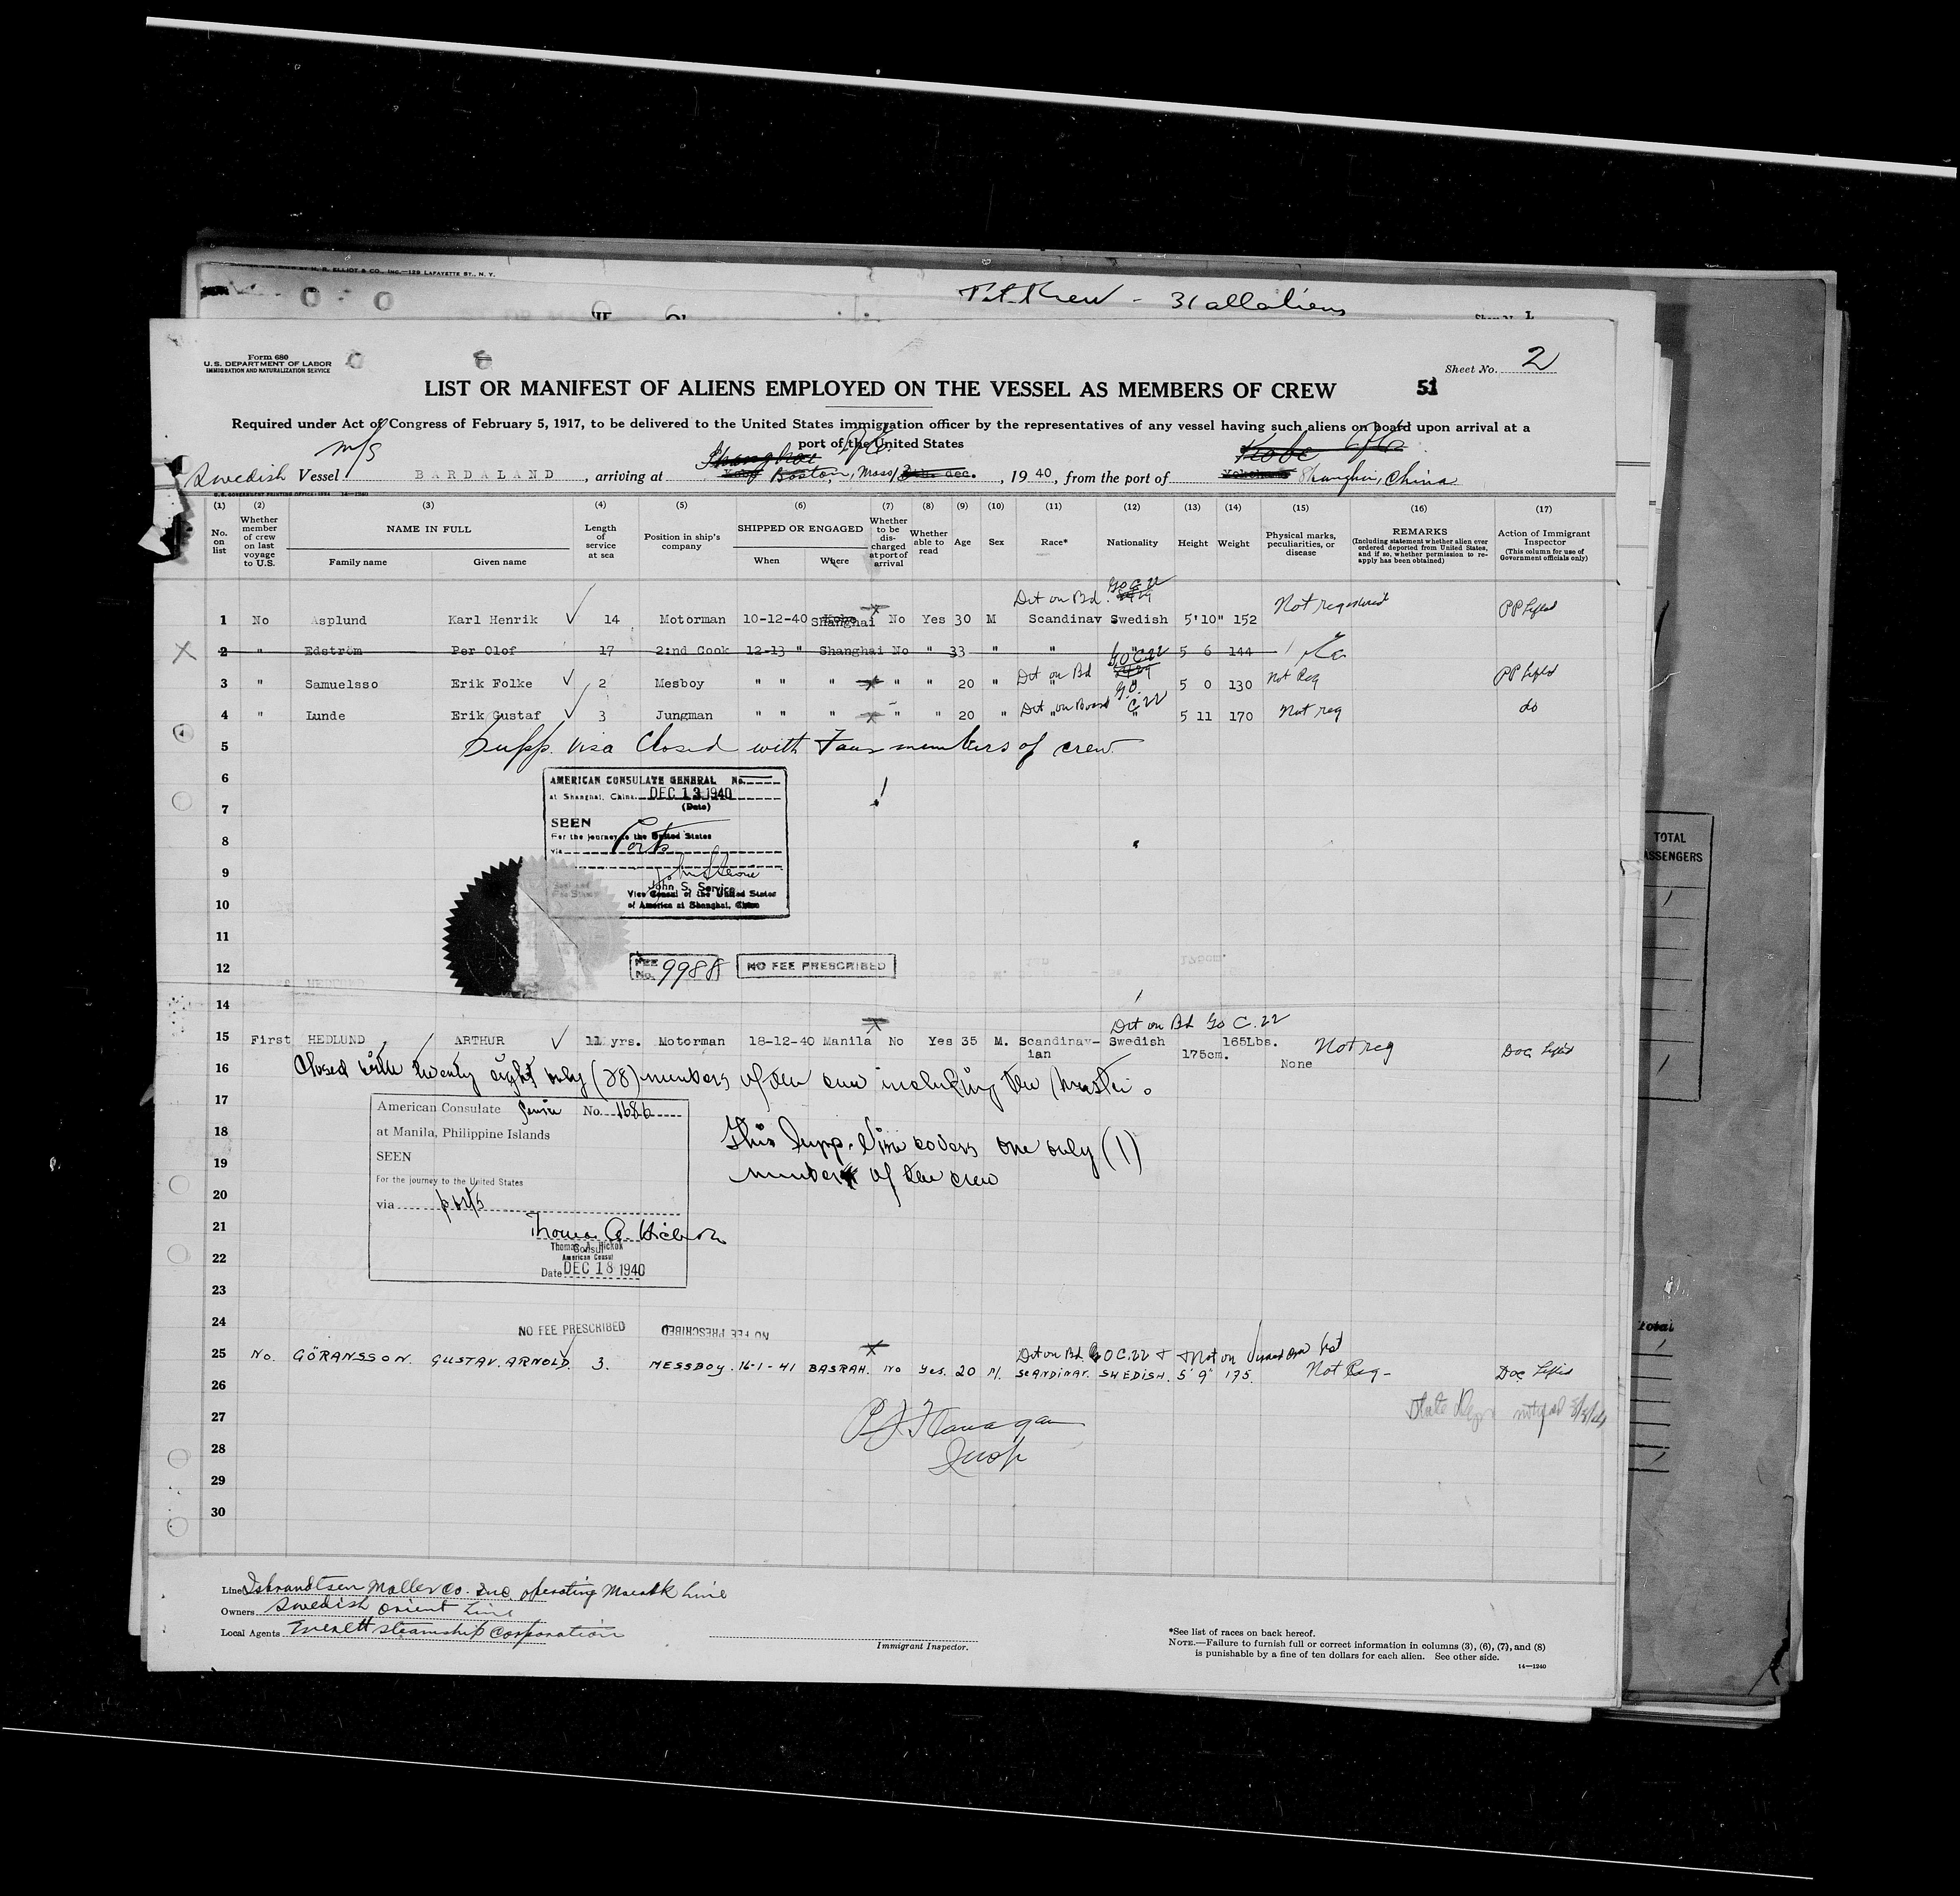 H. R. ELLIOT & CO., INC.—129 LAFAYETTE ST., N. Y.
31 all aliens
Form 680
U. S. DEPARTMENT OF LABOR
IMMIGRATION AND NATURALIZATION SERVICE
Sheet No. 2
LIST OR MANIFEST OF ALIENS EMPLOYED ON THE VESSEL AS MEMBERS OF CREW 51
Required under Act of Congress of February 5, 1917, to be delivered to the United States immigration officer by the representatives of any vessel having such aliens on board upon arrival at a
port of the United States
m/s Shanghai Kobe
Swedish Vessel BARDALAND, arriving at Boston, Mass, 1940, from the port of Shanghai, China
(1) (2) (3) (4) (5) (6) (7) (8) (9) (10) (11) (12) (13) (14) (15) (16) (17)
No. on list
Whether member of crew on last voyage to U.S.
NAME IN FULL
Family name Given name
Length of service at sea
Position in ship's company
SHIPPED OR ENGAGED
When Where
Whether to be discharged at port of arrival
Whether able to read
Age
Sex
Race*
Nationality
Height
Weight
Physical marks, peculiarities, or disease
REMARKS
(Including statement whether alien ever ordered deported from United States, and if so, whether permission to reapply has been obtained)
Action of Immigrant Inspector
(This column for use of Government officials only)
Det on Bd. GO C 22
1 No Asplund Karl Henrik 14 Motorman 10-12-40 Shanghai No Yes 30 M Scandinav Swedish 5'10" 152 Not registered PP Lifted
2 " Edström Per Olof 17 2:nd Cook 12-13 " Shanghai No " 33 " " " 5 6 144
Det on Bd GO C 22
3 " Samuelsso Erik Folke 2 Mesboy " " " " " 20 " " " 5 0 130 Not Reg PP Lifted
Det on Board G.O. C.22
4 " Lunde Erik Gustaf 3 Jungman " " " " " 20 " " " 5 11 170 Not reg do
5 Supp. visa closed with Four members of crew
6
7
8
9
10
11
12
AMERICAN CONSULATE GENERAL No.
at Shanghai, China. DEC 13 1940
(Date)
SEEN
For the journey to the United States
via Ports
John S. Service
Vice Consul of the United States
of America at Shanghai, China
FEE No. 9988 NO FEE PRESCRIBED
14
Det on Bd GO C.22
15 First HEDLUND ARTHUR 11 yrs. Motorman 18-12-40 Manila No Yes 35 M. Scandinavian Swedish 175cm. 165Lbs. None Not reg Doc Lifted
16 Closed with twenty eight only (28) members of the crew including the Master.
17
18
19
20
21
22
23
24
American Consulate Service No. 1686
at Manila, Philippine Islands
SEEN
For the journey to the United States
via ports
Thomas A. Hickok
Thomas A. Hickok
Consul
American Consul
Date DEC 18 1940
This Supp. Visa covers one only (1)
member of the crew
NO FEE PRESCRIBED NO FEE PRESCRIBED
Det on Bd. GO C.22
25 No. GÖRANSSON. GUSTAV. ARNOLD. 3. MESSBOY. 16-1-41 BASRAH. No Yes. 20 M. SCANDINAV. SWEDISH. 5'9" 175. Not Reg - Doc Lifted
26
27
28
29
30
P J Flanagan
Insp
Line Isbrandtsen Moller Co. Inc operating Maersk Line
Owners Swedish Orient Line
Local Agents Everett Steamship Corporation
Immigrant Inspector.
*See list of races on back hereof.
NOTE.—Failure to furnish full or correct information in columns (3), (6), (7), and (8)
is punishable by a fine of ten dollars for each alien. See other side.
14—1240
TOTAL
PASSENGERS
Total